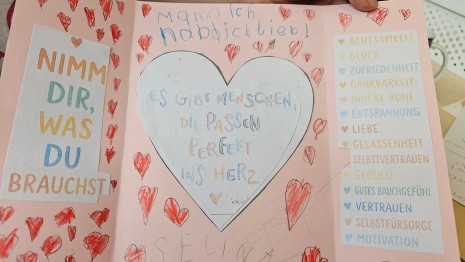 NIMM
DIR,
WAS
DU
BRAUCHST
Mama Ich
habdichlieb!
ES GIBT MENSCHEN,
DIE PASSEN
PERFEKT
INS HERZ
SELINA
ACHTSAMKEIT
GLÜCK
ZUFRIEDENHEIT
DANKBARKEIT
INNERE RUHE
ENTSPANNUNG
LIEBE
GELASSENHEIT
SELBSTVERTRAUEN
GEDULD
GUTES BAUCHGEFÜHL
VERTRAUEN
SELBSTFÜRSORGE
MOTIVATION